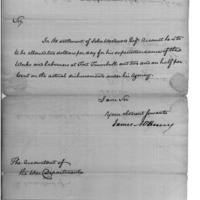 Sir
In the settlement of John
Account he is to
be allowed two dollars per day for his superintendance of the
Works and Laborers at Fort Trumbull and two and an half per
cent on the actual disbursements under his Agency.
I am Sir
Your obedient Servant
James McHenry
The Accountant of
the War Department